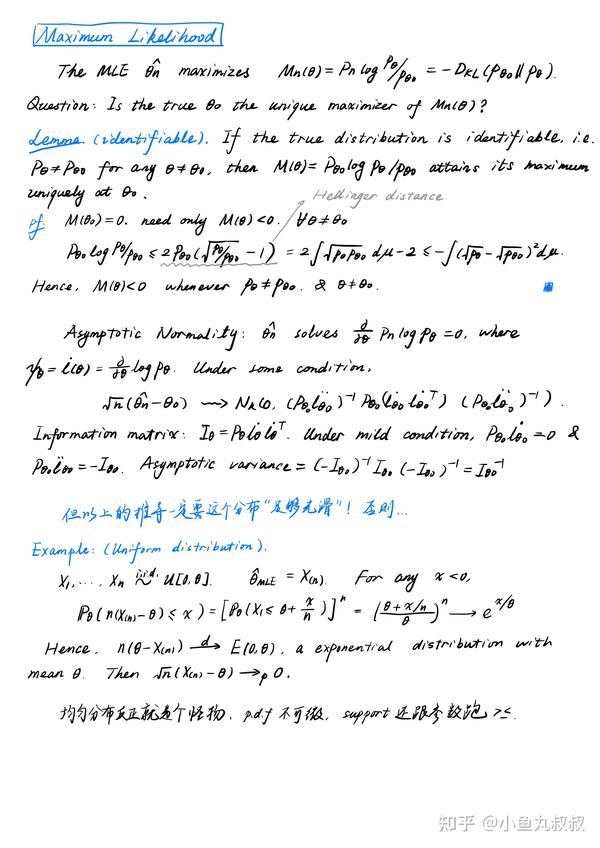 Maximum Likelihood
The MLE θ̂n maximizes Mn(θ) = Pn log pθ/pθ₀ = -DKL(pθ₀ || pθ).
Question: Is the true θ₀ the unique maximizer of Mn(θ)?
Lemma (identifiable). If the true distribution is identifiable, i.e.
Pθ ≠ Pθ₀ for any θ ≠ θ₀, then M(θ) = Pθ₀ log pθ/pθ₀ attains its maximum
uniquely at θ₀.
Hellinger distance
Pf: M(θ₀) = 0. need only M(θ) < 0. ∀θ ≠ θ₀
Pθ₀ log pθ/pθ₀ ≤ 2Pθ₀(√(pθ/pθ₀) - 1) = 2∫√(pθ pθ₀) dμ - 2 ≤ -∫(√pθ - √pθ₀)² dμ.
Hence, M(θ) < 0 whenever pθ ≠ pθ₀. & θ ≠ θ₀.
Asymptotic Normality: θ̂n solves ∂/∂θ Pn log pθ = 0, where
ψθ = l̇(θ) = ∂/∂θ log pθ. Under some condition,
√n(θ̂n - θ₀) ⇝ Nk(0, (Pθ₀ l̈θ₀)⁻¹ Pθ₀(l̇θ₀ l̇θ₀ᵀ) (Pθ₀ l̈θ₀)⁻¹).
Information matrix: Iθ = Pθ l̇θ l̇θᵀ. Under mild condition, Pθ₀ l̇θ₀ = 0 &
Pθ₀ l̈θ₀ = -Iθ₀. Asymptotic variance = (-Iθ₀)⁻¹ Iθ₀ (-Iθ₀)⁻¹ = Iθ₀⁻¹
但以上的推导一定要这个分布"足够光滑"! 否则...
Example: (Uniform distribution).
X₁, ..., Xn i.i.d. ~ U[0, θ]. θ̂MLE = X(n). For any x < 0,
Pθ(n(X(n) - θ) ≤ x) = [Pθ(X₁ ≤ θ + x/n)]ⁿ = ((θ + x/n)/θ)ⁿ → e^(x/θ)
Hence, n(θ - X(n)) →d E(0, θ), a exponential distribution with
mean θ. Then √n(X(n) - θ) →p 0.
均匀分布反正就是个怪物, p.d.f 不可微, support 还跟参数跑 >≤.
知乎 @小鱼丸叔叔